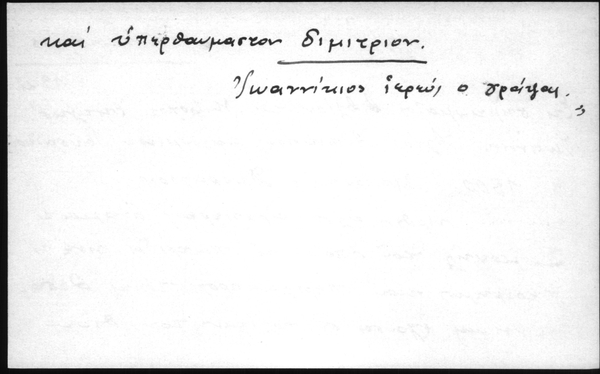 καί ὑπερθαυμαστον διμιτριον.
Ἰωαννίκιος ἱερεύς ο γράψας.